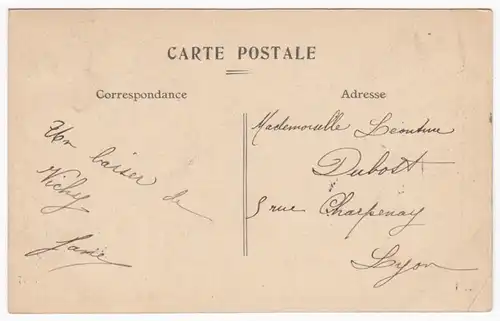 CARTE POSTALE
Correspondance
Adresse
Un baiser de
Vichy
Mademoiselle Léontine
Dubost
5 rue Charpenay
Lyon